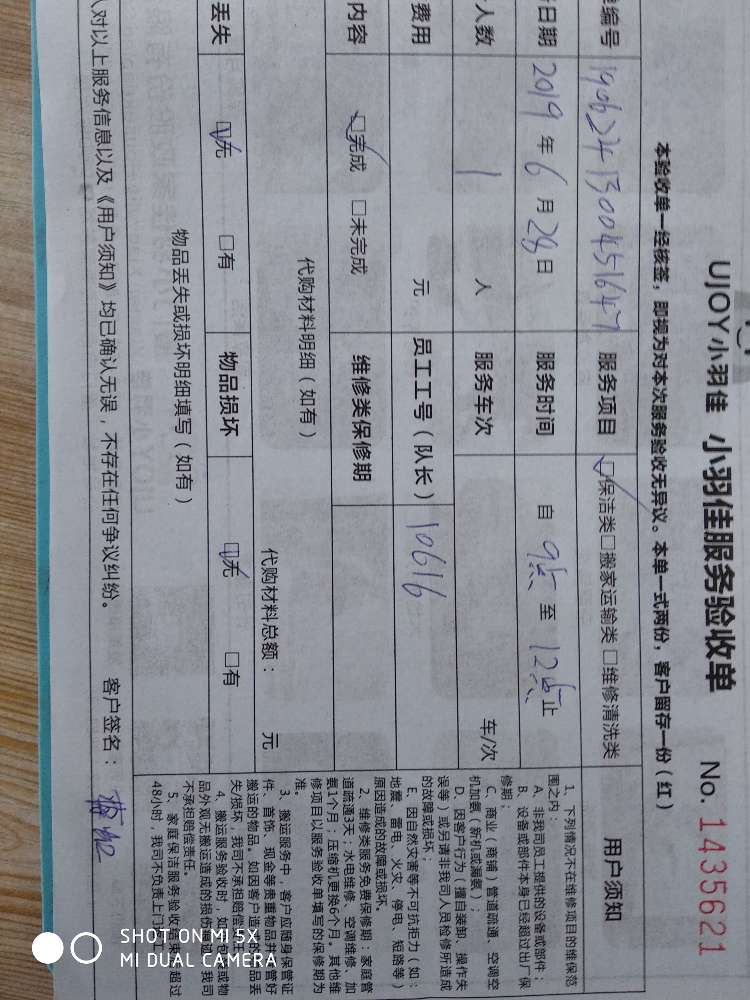 UJOY小羽佳 小羽佳服务验收单 No. 1435621
本验收单一经核签，即视为对本次服务验收无异议。本单一式两份，客户留存一份（红）
编号 1906241300451647 服务项目 保洁类 □搬家运输类 □维修清洗类
日期 2019年6月28日 服务时间 自 9点 至 12点 止
人数 1 人 服务车次 车/次
费用 元 员工工号（队长） 10616
内容 □完成 □未完成 维修类保修期
代购材料明细（如有）
代购材料总额： 元
丢失 □无 □有 物品损坏 □无 □有
物品丢失或损坏明细填写（如有）
人对以上服务信息以及《用户须知》均已确认无误，不存在任何争议纠纷。 客户签名：
用户须知
1、下列情况不在维修项目的维保范
围之内：
A、非我司员工提供的设备或部件；
B、设备或部件本身已经超过出厂保
修期；
C、商业/商铺/管道疏通、空调空
机加氨（新机或漏氨）；
D、因客户行为（擅自装卸、操作失
误等）或另请非我司人员检修所造成
的故障或损坏；
E、因自然灾害等不可抗拒力（如：
地震、雷电、火灾、停电、短路等）
原因造成的故障或损坏。
2、维修类服务免费保修期：家庭管
道疏通3天；水电维修、空调维修、加
氨1个月；压缩机更换6个月。其他维
修项目以服务验收单填写的保修期为
准。
3、搬运服务中，客户应随身保管证
件、首饰、现金等贵重物品并保管好
搬运的物品。如因客户造成的
失/损坏，我司不承担赔偿
4、搬运服务验收时，如
品外观无搬运造成的损伤 我司
不承担赔偿责任。
5、家庭保洁服务验收 超过
48小时，我司不负责上门
SHOT ON MI 5X
MI DUAL CAMERA